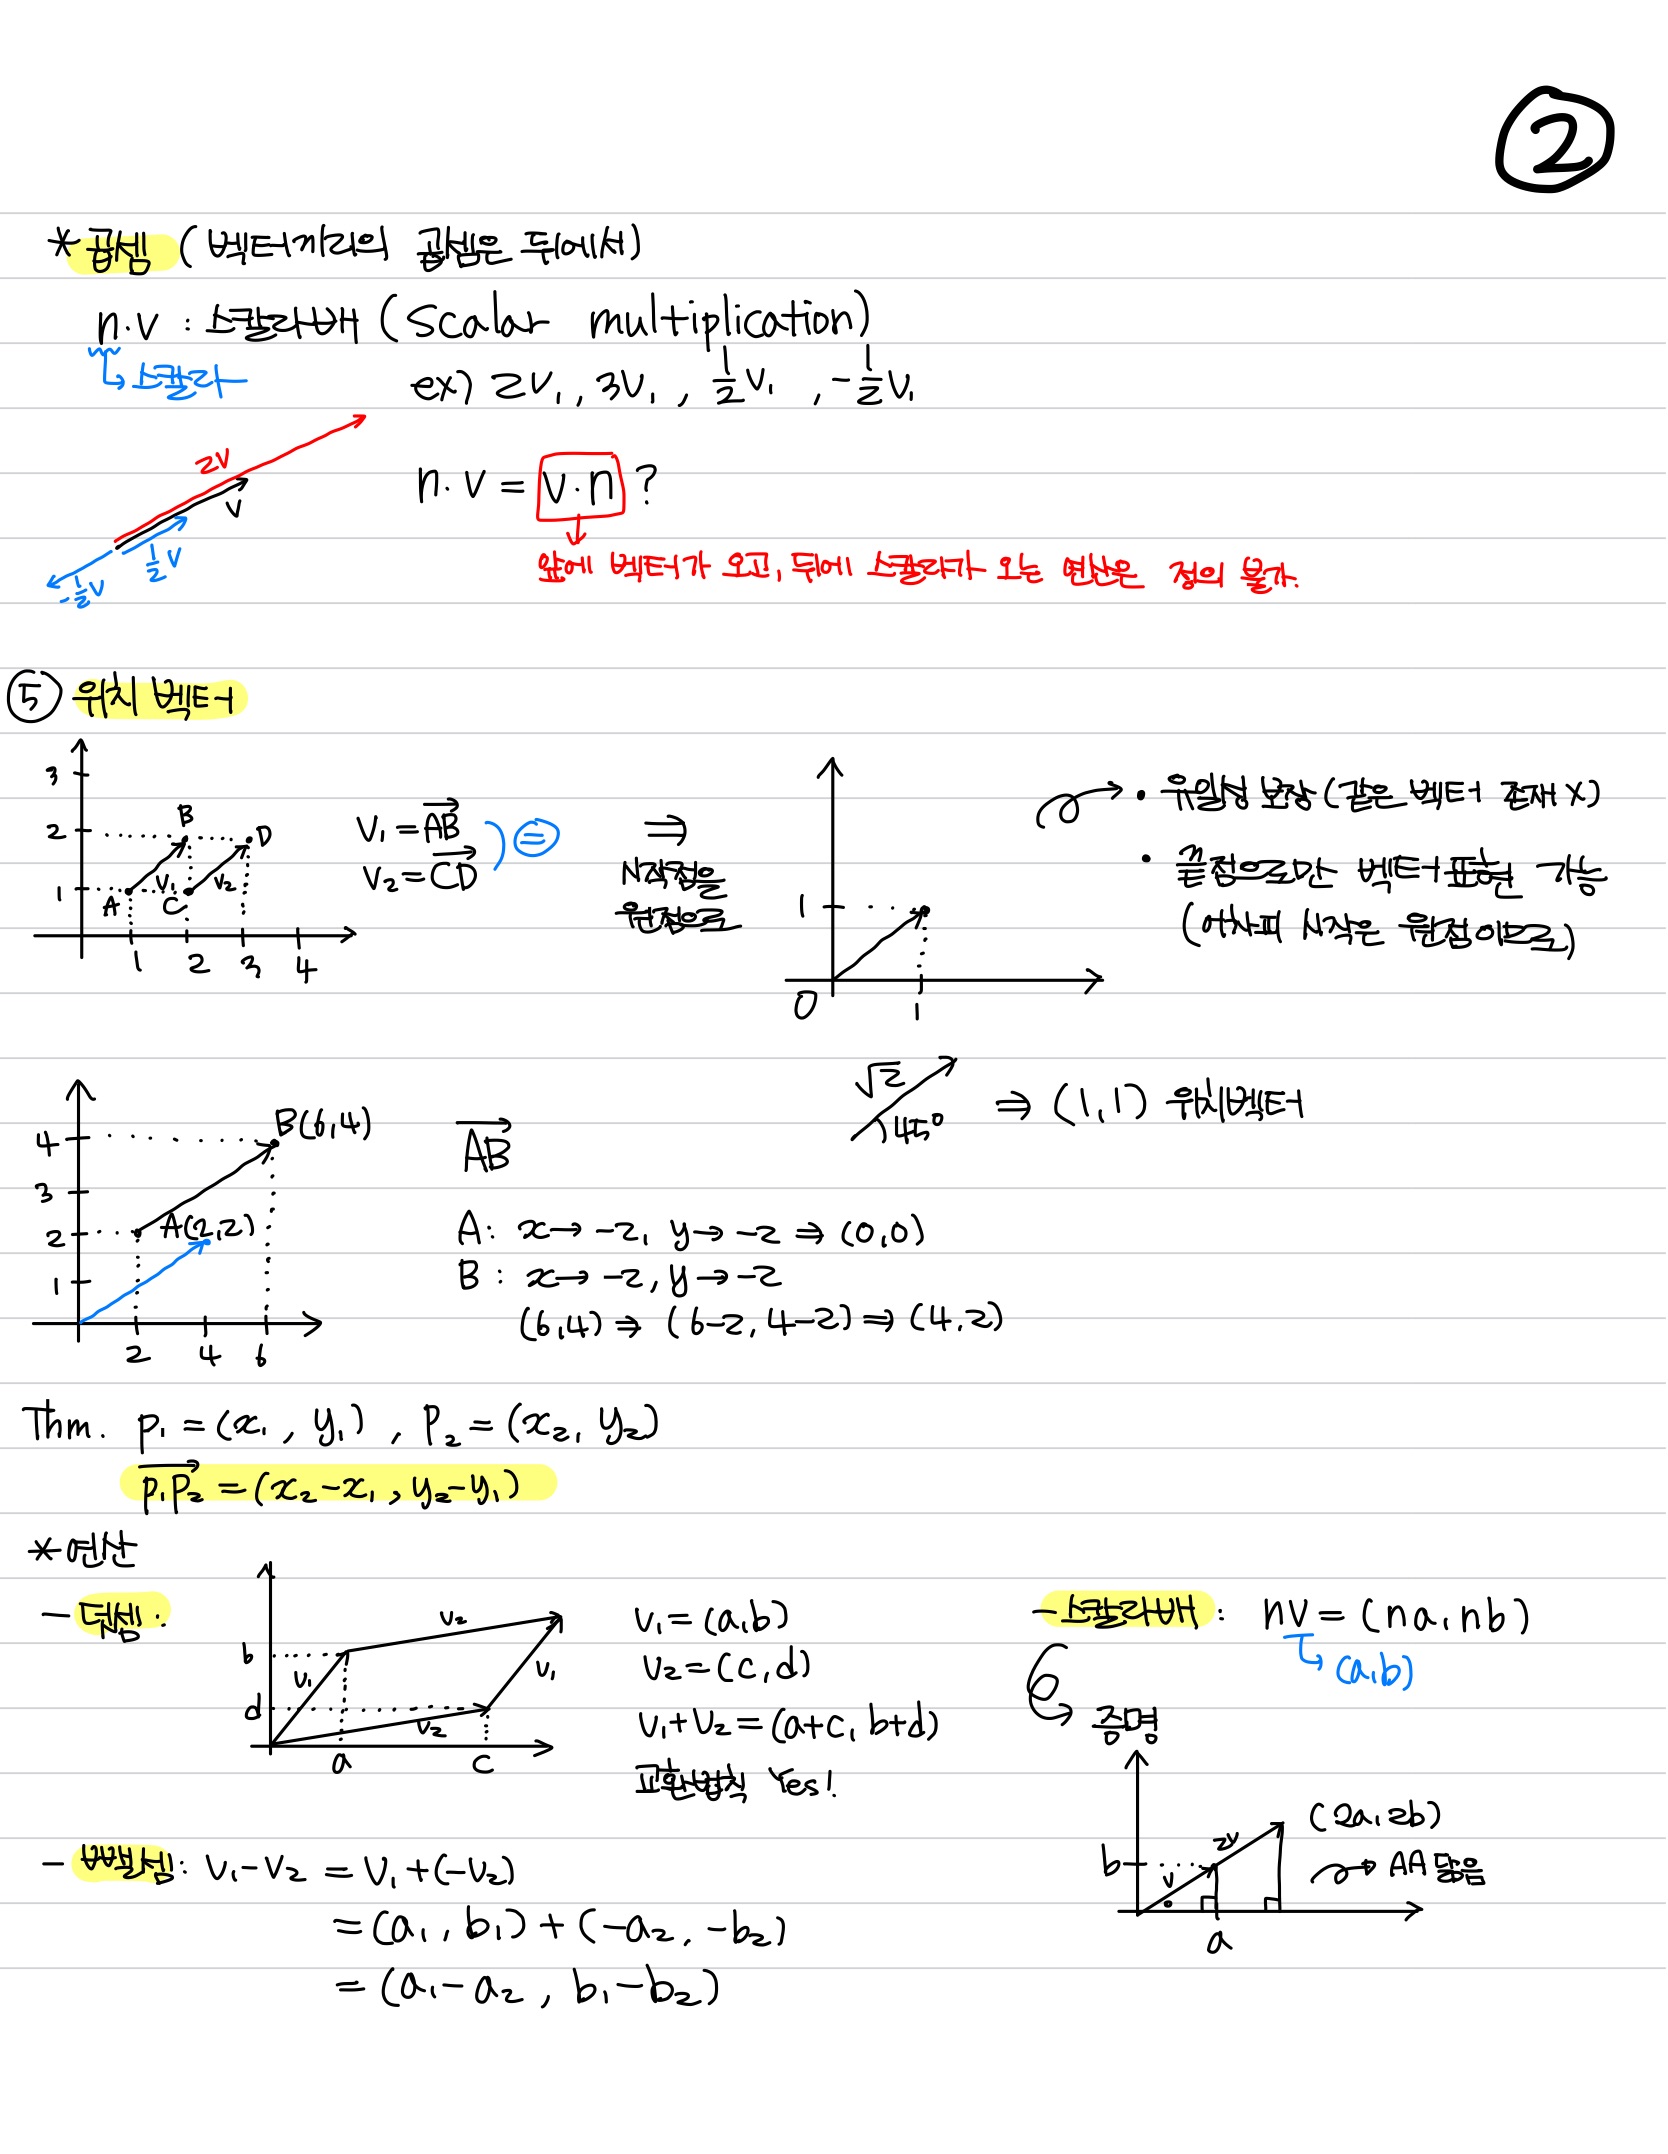 ②
*곱셈 (벡터끼리의 곱셈은 뒤에서)
n·v : 스칼라배 (Scalar multiplication)
↳ 스칼라
ex) 2v₁, 3v₁, ½v₁, -½v₁
2v
v
½v
-½v
n·v = v·n ?
앞에 벡터가 오고, 뒤에 스칼라가 오는 연산은 정의 불가.
⑤ 위치 벡터
3
2
1
B
D
A
v₁
C
v₂
1 2 3 4
V₁ = AB→
V₂ = CD→
=
⇒
시작점을
원점으로
1
0
1
• 유일성 보장 (같은 벡터 존재 X)
• 끝점으로만 벡터 표현 가능
(어차피 시작은 원점이므로)
√2
45°
⇒ (1,1) 위치벡터
4
3
2
1
B(6,4)
A(2,2)
2 4 6
AB→
A: x→-2, y→-2 ⇒ (0,0)
B: x→-2, y→-2
(6,4) ⇒ (6-2, 4-2) ⇒ (4,2)
Thm. P₁ = (x₁, y₁), P₂ = (x₂, y₂)
P₁P₂→ = (x₂-x₁, y₂-y₁)
*연산
- 덧셈:
b
d
v₁
v₂
v₂
v₁
a
c
V₁ = (a,b)
V₂ = (c,d)
V₁+V₂ = (a+c, b+d)
교환법칙 Yes!
- 스칼라배: nv = (na, nb)
↳ (a,b)
증명
b
v
2v
a
(2a, 2b)
AA 닮음
- 뺄셈: V₁-V₂ = V₁+(-V₂)
= (a₁, b₁) + (-a₂, -b₂)
= (a₁-a₂, b₁-b₂)